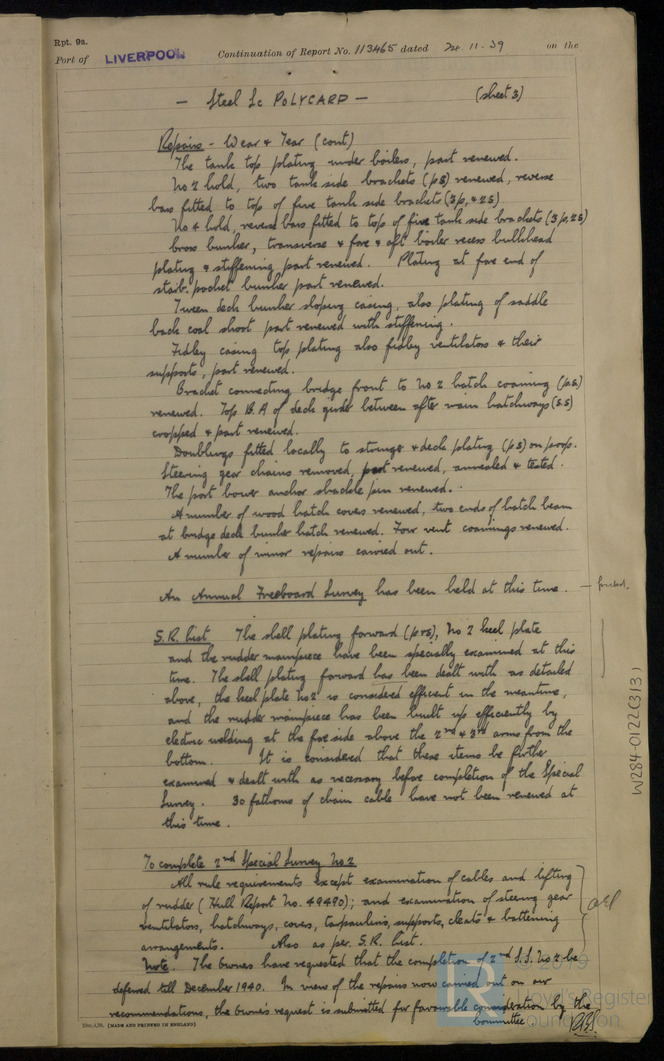 Rpt. 9a.
Port of LIVERPOOL Continuation of Report No. 113465 dated 11-39 on the
— Steel Sc POLYCARP — (sheet 3)
Repairs - Wear & Tear (cont)
The tank top plating under boilers, part renewed.
No 2 hold, two tank side brackets (ps) renewed, reverse
bars fitted to top of five tank side brackets (3p, & 2s)
No 4 hold, reverse bars fitted to top of five tank side brackets (3p, 2s)
Cross bunker, transverse & fore & aft boiler recess bulkhead
plating & stiffening part renewed. Plating at fore end of
starb. pocket bunker part renewed.
Tween deck bunker sloping casing, also plating of saddle
back coal shoot part renewed with stiffening.
Fidley casing top plating also fidley ventilators & their
supports, part renewed.
Bracket connecting bridge front to No 2 hatch coaming (ps)
renewed. Top B.A of deck girder between after main hatchways (SS)
cropped & part renewed.
Doublings fitted locally to stringer & deck plating (ps) on poop.
Steering gear chains removed, part renewed, annealed & tested.
The port bower anchor shackle pin renewed.
A number of wood hatch covers renewed, two ends of hatch beam
at bridge deck bunker hatch renewed. Four vent coamings renewed.
A number of minor repairs carried out.
An Annual Freeboard Survey has been held at this time.
S.R. List The shell plating forward (p&s), No 2 keel plate
and the rudder mainpiece have been specially examined at this
time. The shell plating forward has been dealt with as detailed
above, the keel plate No 2 is considered efficient in the meantime,
and the rudder mainpiece has been built up efficiently by
electric welding at the fore side above the 2nd & 3rd arms from the
bottom. It is considered that these items be further
examined & dealt with as necessary before completion of the Special
Survey. 30 fathoms of chain cable have not been renewed at
this time.
To complete 2nd Special Survey No 2
All rule requirements except examination of cables and lifting
of rudder (Hull Report No. 49490); and examination of steering gear
ventilators, hatchways, covers, tarpaulins, supports, cleats & battening
arrangements. Also as per S.R. List.
Note. The Owners have requested that the completion of 2nd S.S. No 2 be
deferred till December 1940. In view of the repairs now carried out on our
recommendations, the Owners request is submitted for favourable consideration by the
Committee.
(MADE AND PRINTED IN ENGLAND)
W284-0122(3/3)
© 2019
Lloyd's Register
Foundation